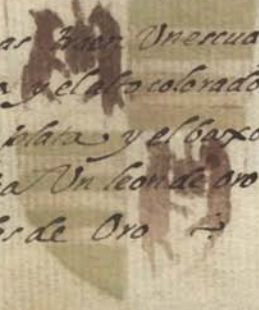 as traen Un escua
a y el alto colorado
plata y el baxo
a Un leon de oro
s de Oro